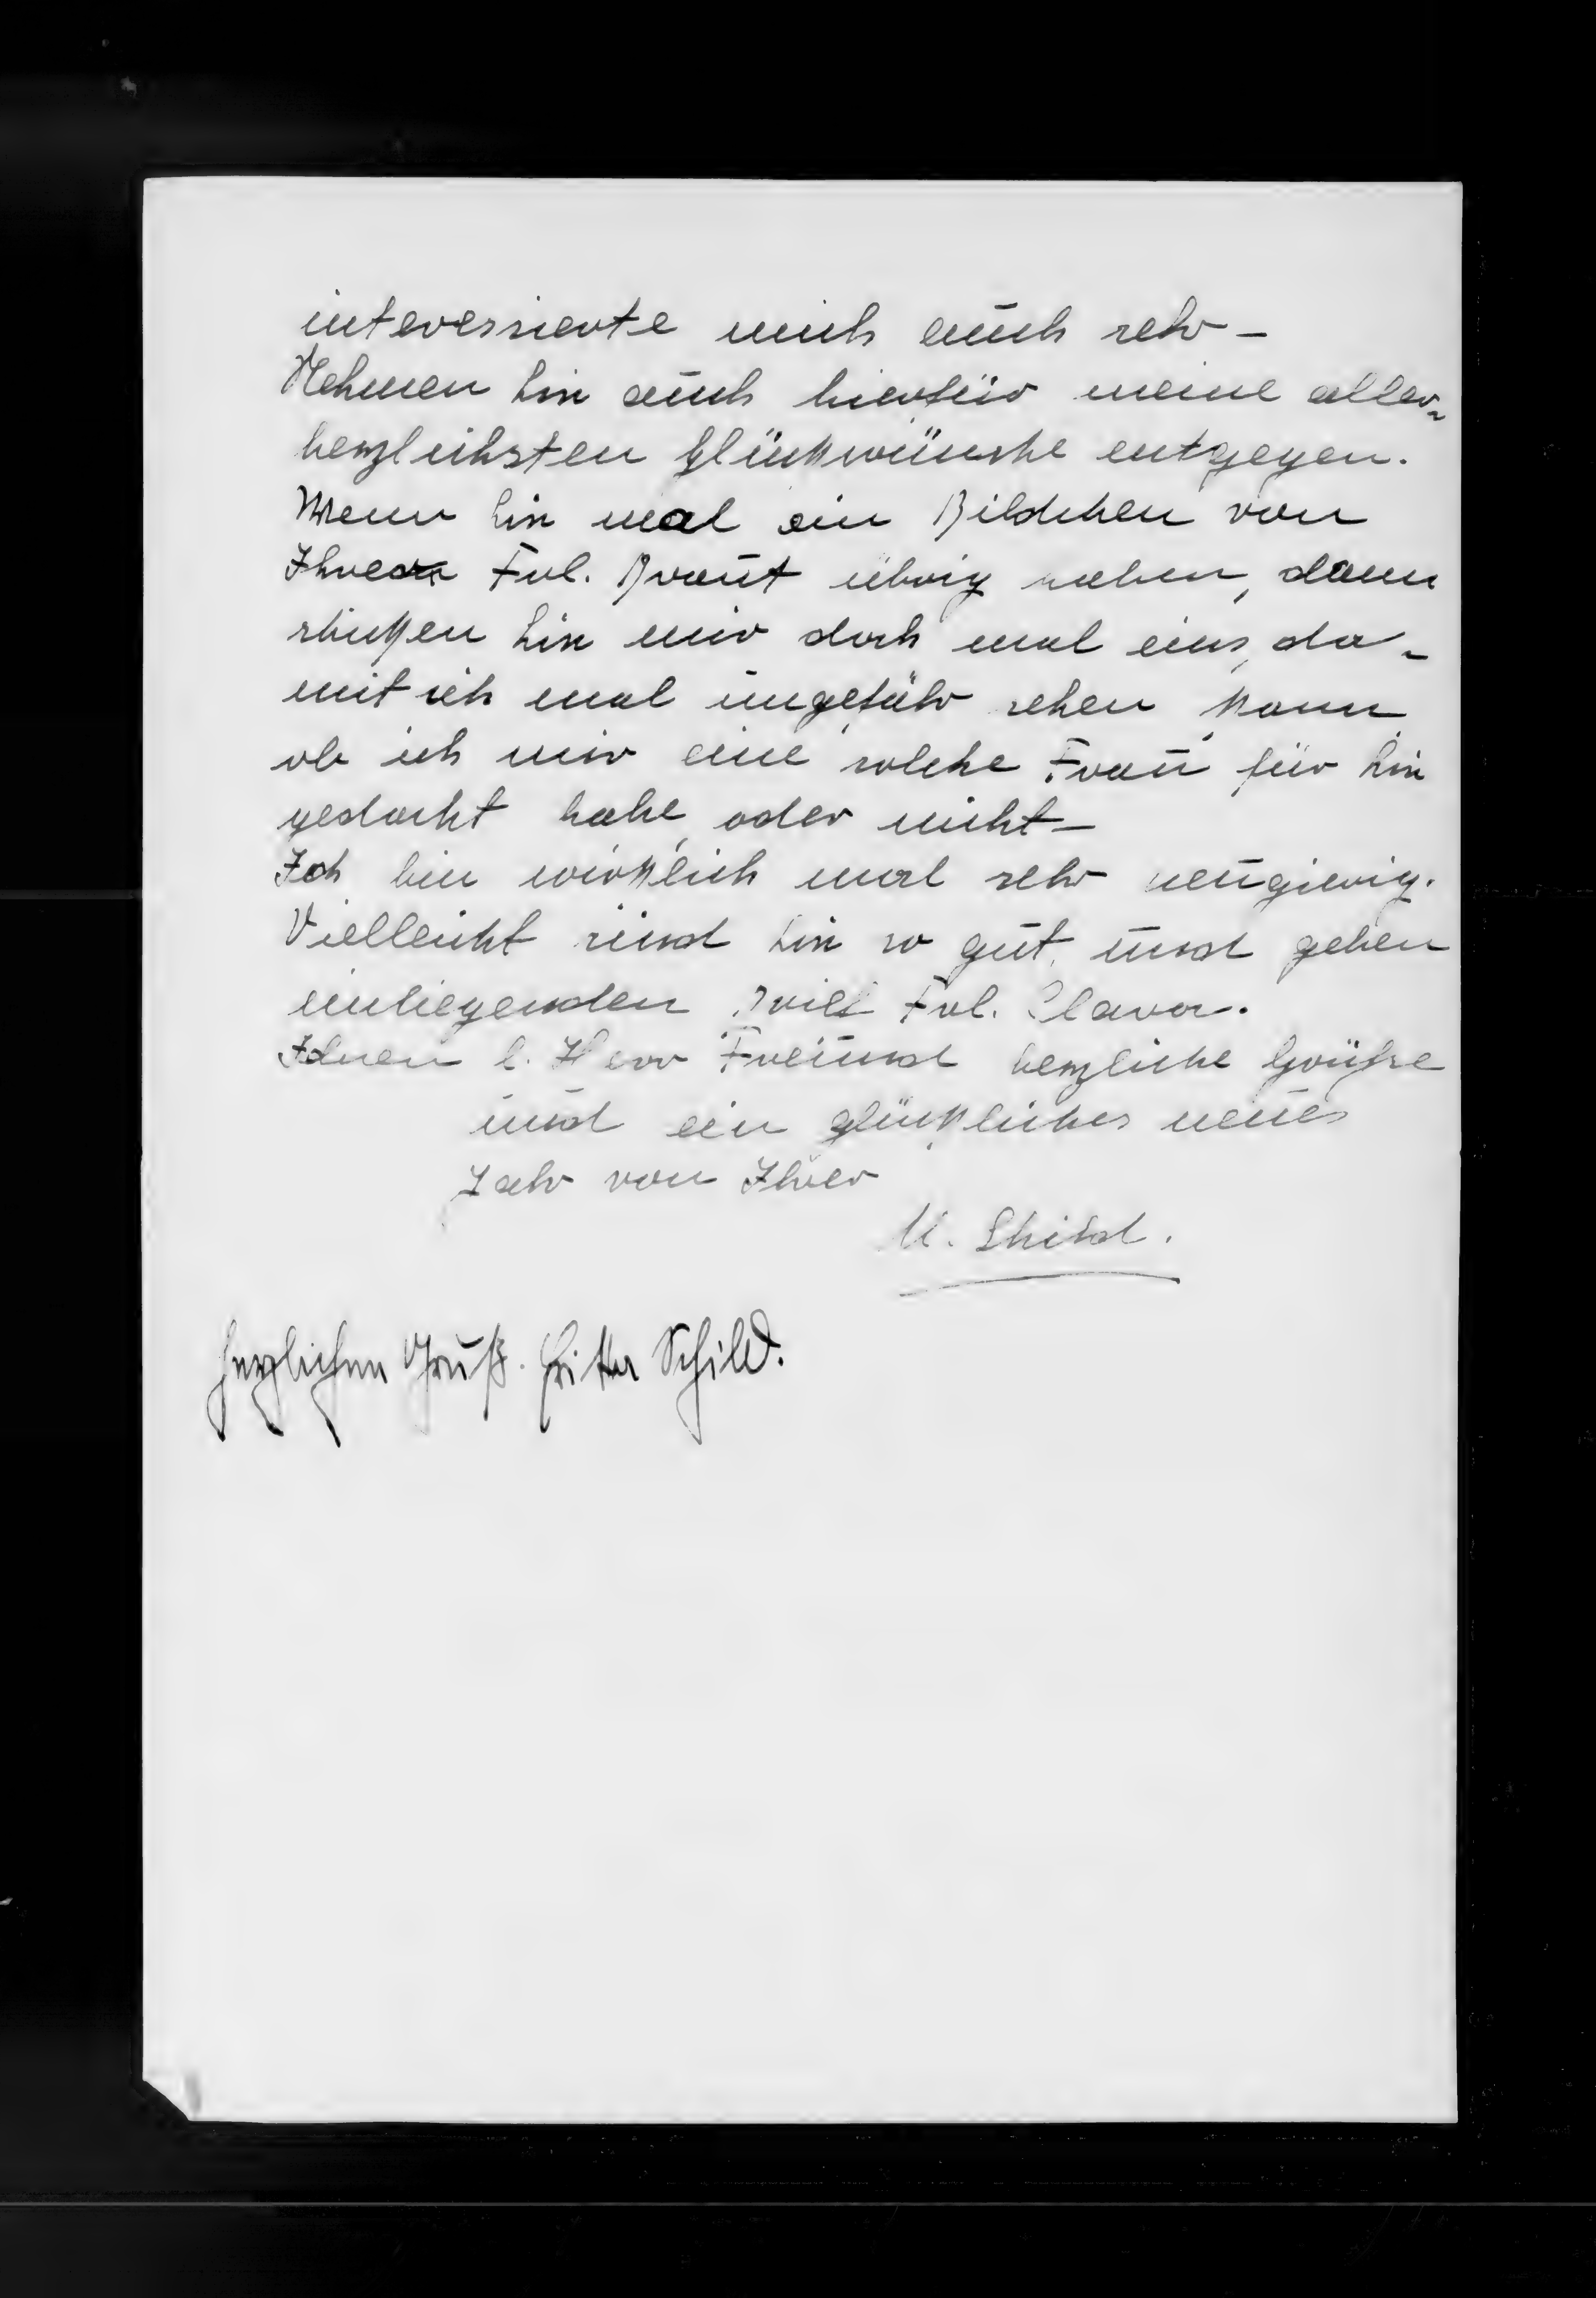 interessierte mich auch sehr –
Nehmen Sie auch hierfür meine aller-
herzlichsten Glückwünsche entgegen.
Wenn Sie mal ein Bildchen von
Ihrer Frl. Braut übrig haben, dann
schicken Sie mir doch mal eins, da-
mit ich mal ungefähr sehen kann,
ob ich mir eine solche Frau für Sie
gedacht habe, oder nicht –
Ich bin wirklich mal sehr neugierig.
Vielleicht sind Sie so gut und geben
einliegenden Brief Frl. Clara.
Ihnen l. Herr Freund herzliche Grüsse
und ein glückliches neues
Jahr von Ihrer
M. Schild.
Herzlichen Gruß. Schild.